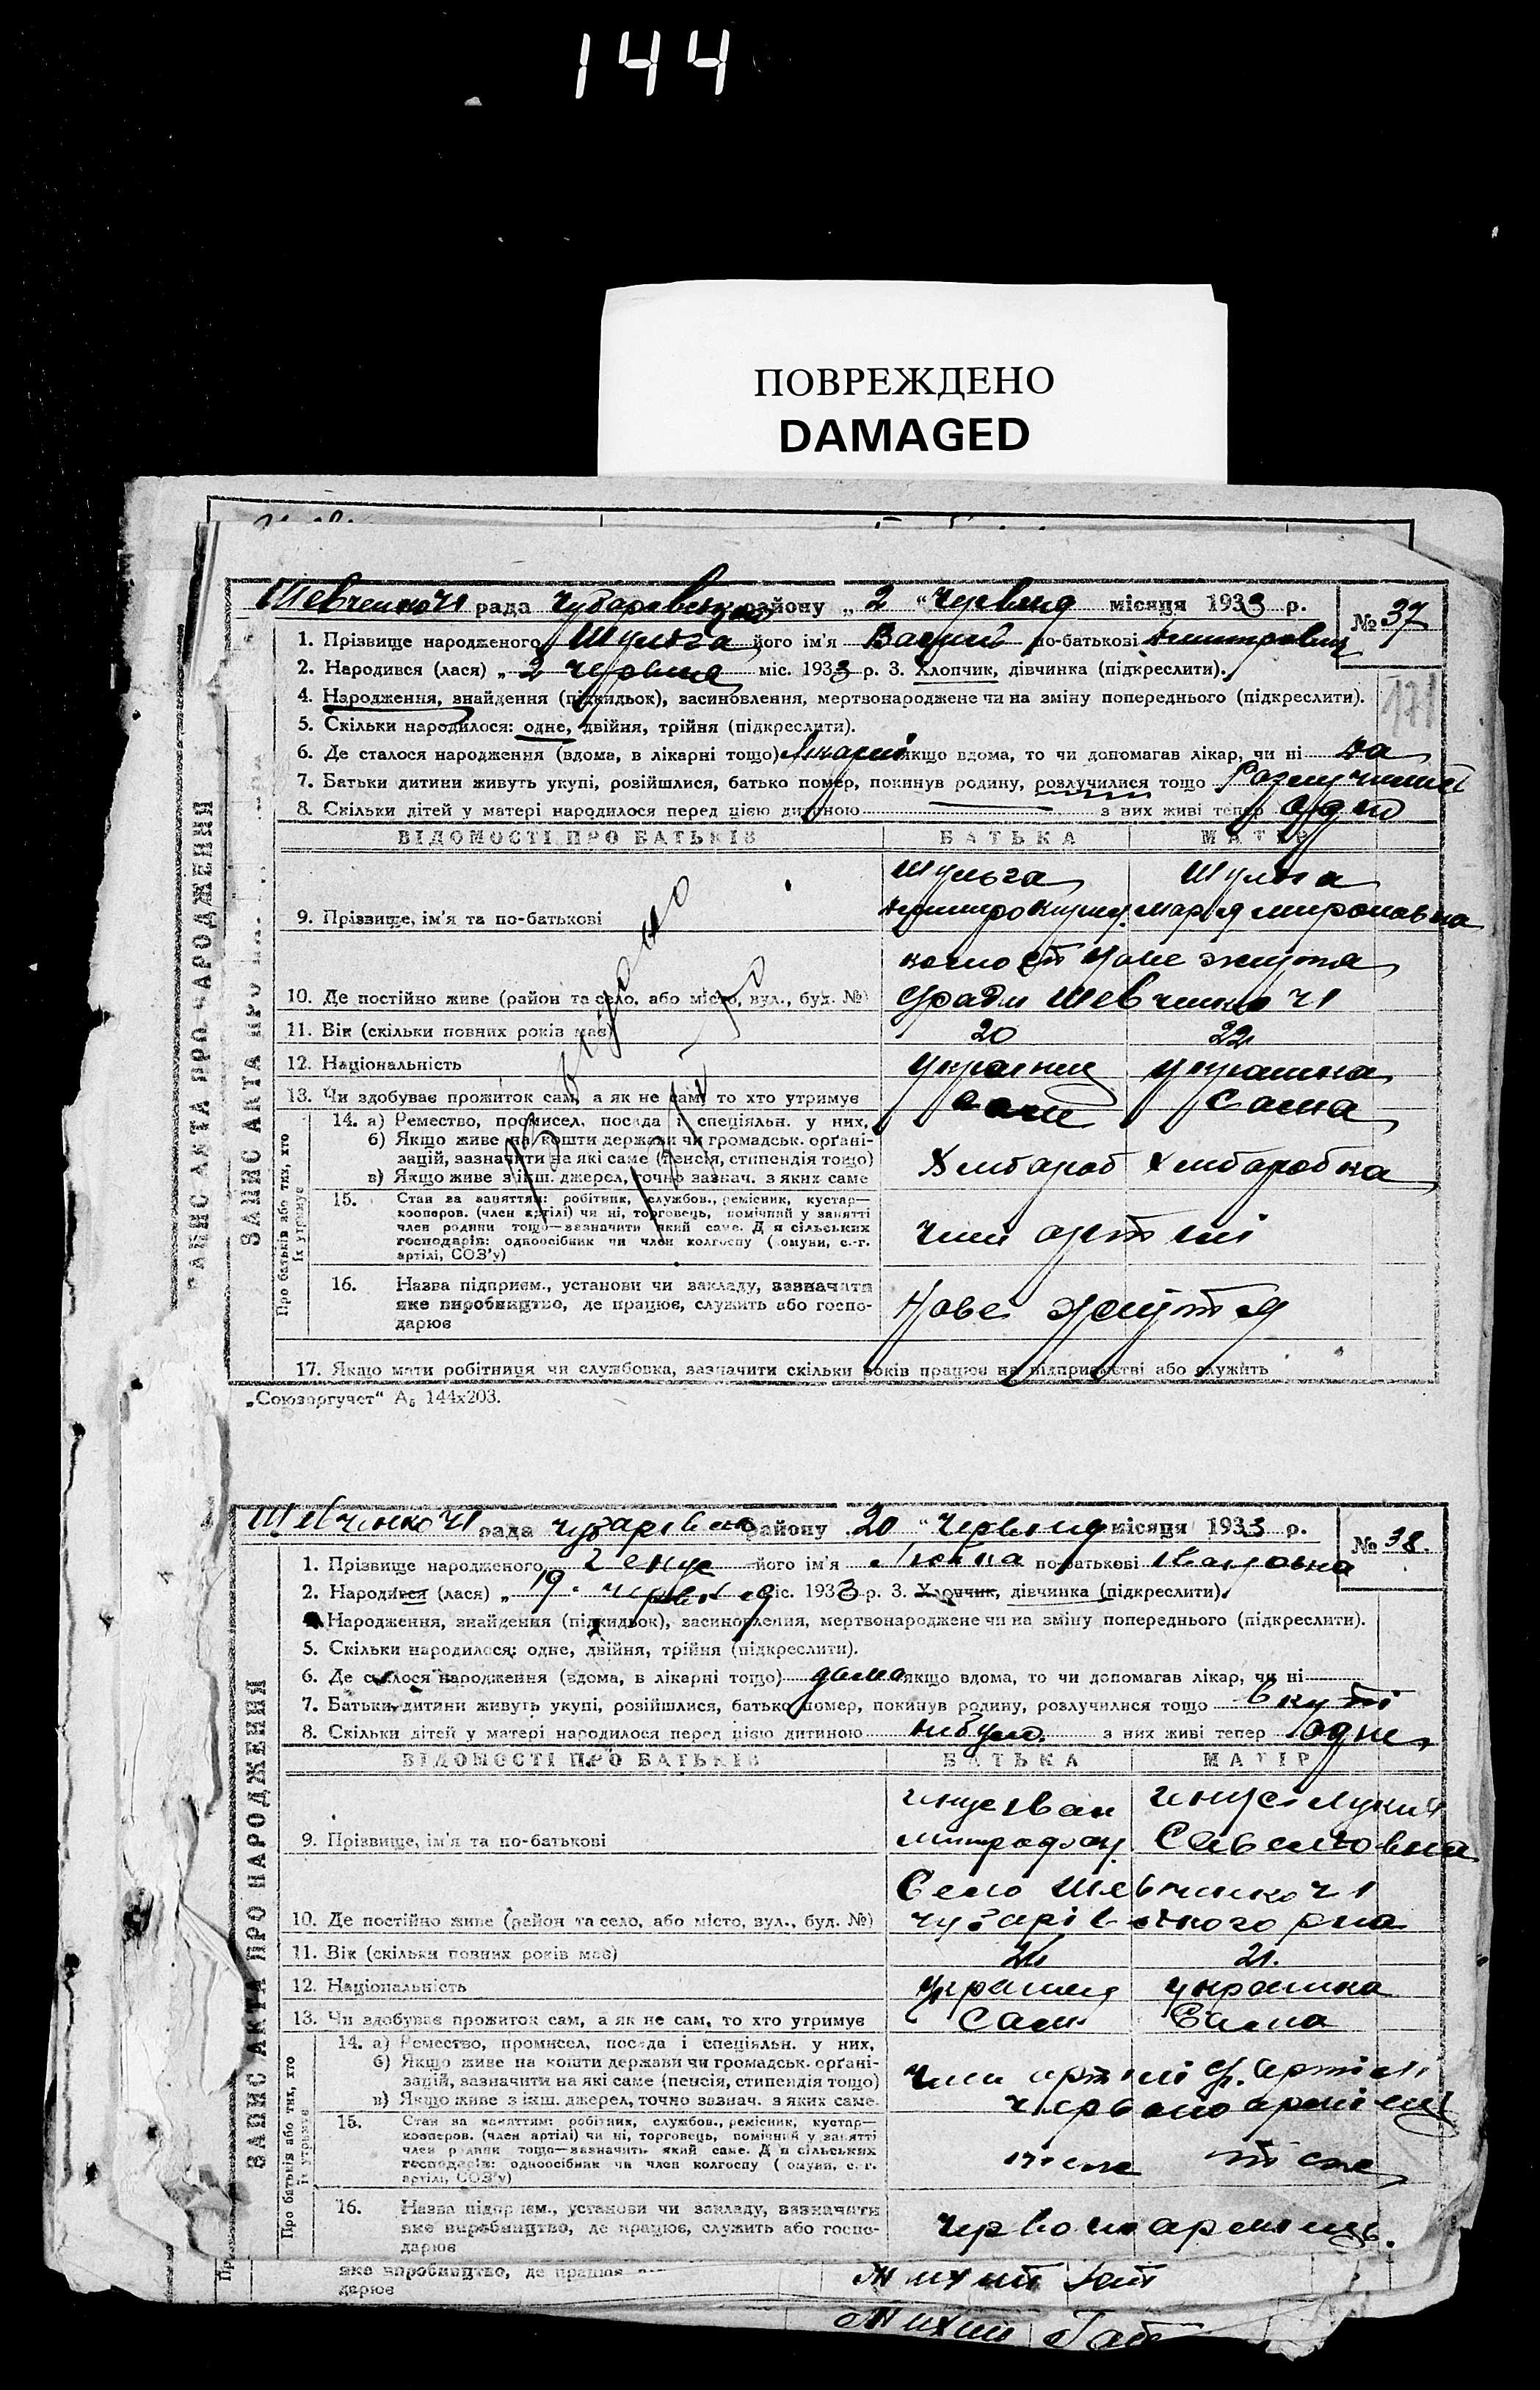 144
ПОВРЕЖДЕНО
DAMAGED
Шевченко ч1 рада Чубаревського району „ 2 “ Червня місяця 1933 р. № 37
1. Прізвище народженого Шульга його ім'я Василий по-батькові Дмитрович
2. Народився (лася) „ 2 червня міс. 1933 р. 3. Хлопчик, дівчинка (підкреслити).
4. Народження, знайдення (підкидьок), засиновлення, мертвонароджене чи на зміну попереднього (підкреслити).
171
5. Скільки народилося: одне, двійня, трійня (підкреслити).
6. Де сталося народження (вдома, в лікарні тощо) лікарні якщо вдома, то чи допомагав лікар, чи ні
7. Батьки дитини живуть укупі, розійшлися, батько помер, покинув родину, розлучилися тощо
8. Скільки дітей у матері народилося перед цією дитиною — з них живі тепер одно
ВІДОМОСТІ ПРО БАТЬКІВ БАТЬКА МАТІР
Шульга Шульга
9. Прізвище, ім'я та по-батькові Дмитро Марія Мироновна
Нове життя
10. Де постійно живе (район та село, або місто, вул., буд. №) Сради Шевченко ч1
11. Вік (скільки повних років має) 20 22
12. Національність українец українка
13. Чи здобуває прожиток сам, а як не сам, то хто утримує сам сама
14. а) Ремество, промисел, посада і спеціяльн. у них,
б) Якщо живе на кошти держави чи громадськ. орґані-
зацій, зазначити на які саме (пенсія, стипендія тощо)
в) Якщо живе з інш. джерел, точно зазнач. з яких саме
Хлібароб Хлібаробка
15. Стан за заняттям: робітник, службов., ремісник, кустар—
кооперов. (член артілі) чи ні, торговець, помічний у занятті
член родини тощо—зазначити який саме. Для сільських
господарів: одноосібник чи член колгоспу (комуни, с.-г.
артілі, СОЗ'у)
член артілі
16. Назва підприєм., установи чи закладу, зазначити
яке виробництво, де працює, служить або госпо-
дарює
Нове життя
17. Якщо мати робітниця чи службовка, зазначити скільки років працює на підприємстві або служить
„Союзоргучет“ А₅ 144х203.
ЗАПИС АКТА ПРО НАРОДЖЕННЯ
Про батьків або тих, хто їх утримує
Шевченко ч1 рада Чубарівського району 20 “ Червня місяця 1933 р. № 38.
1. Прізвище народженого його ім'я по-батькові Івановна
2. Народився (лася) „ 19. червня міс. 1933 р. 3. Хлопчик, дівчинка (підкреслити).
Народження, знайдення (підкидьок), засиновлення, мертвонароджене чи на зміну попереднього (підкреслити).
5. Скільки народилося: одне, двійня, трійня (підкреслити).
6. Де сталося народження (вдома, в лікарні тощо) дома якщо вдома, то чи допомагав лікар, чи ні
7. Батьки дитини живуть укупі, розійшлися, батько помер, покинув родину, розлучилися тощо
8. Скільки дітей у матері народилося перед цією дитиною небуло. з них живі тепер одне
ВІДОМОСТІ ПРО БАТЬКІВ БАТЬКА МАТІР
Іван
9. Прізвище, ім'я та по-батькові
Село Шевченко ч1
10. Де постійно живе (район та село, або місто, вул., буд. №) Чубарівського рна
11. Вік (скільки повних років має) 21.
12. Національність українец українка
13. Чи здобуває прожиток сам, а як не сам, то хто утримує Сам Сама
14. а) Ремество, промисел, посада і спеціяльн. у них,
б) Якщо живе на кошти держави чи громадськ. орґані-
зацій, зазначити на які саме (пенсія, стипендія тощо)
в) Якщо живе з інш. джерел, точно зазнач. з яких саме.
член артілі
червоноармієц
15. Стан за заняттям: робітник, службов., ремісник, кустар—
кооперов. (член артілі) чи ні, торговець, помічний у занятті
член родини тощо—зазначить який саме. Для сільських
господарів: одноосібник чи член колгоспу (комуни, с.-г.
артілі, СОЗ'у)
16. Назва підприєм., установи чи закладу, зазначити
яке виробництво, де працює, служить або госпо-
дарює
Червоноармієць.
ЗАПИС АКТА ПРО НАРОДЖЕННЯ
Про батьків або тих, хто їх утримує
яке виробництво, де працює
дарює